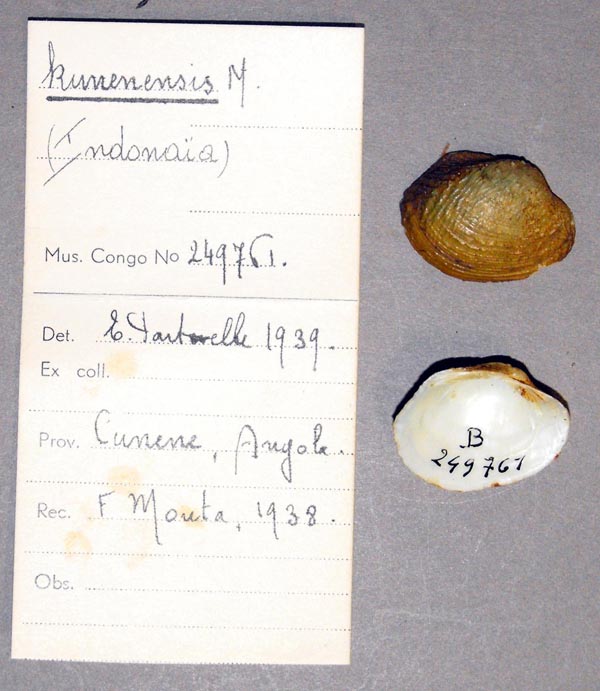 kunenensis M.
(Indonaïa)
Mus. Congo No 249761.
Det. E. Dartevelle 1939.
Ex coll.
Prov. Cunene, Angola.
Rec. F Mouta, 1938.
Obs.
B
249761